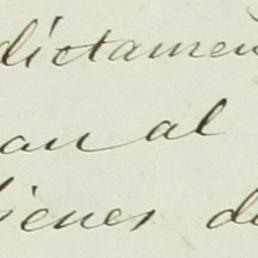 dictamen
an al
ienes de